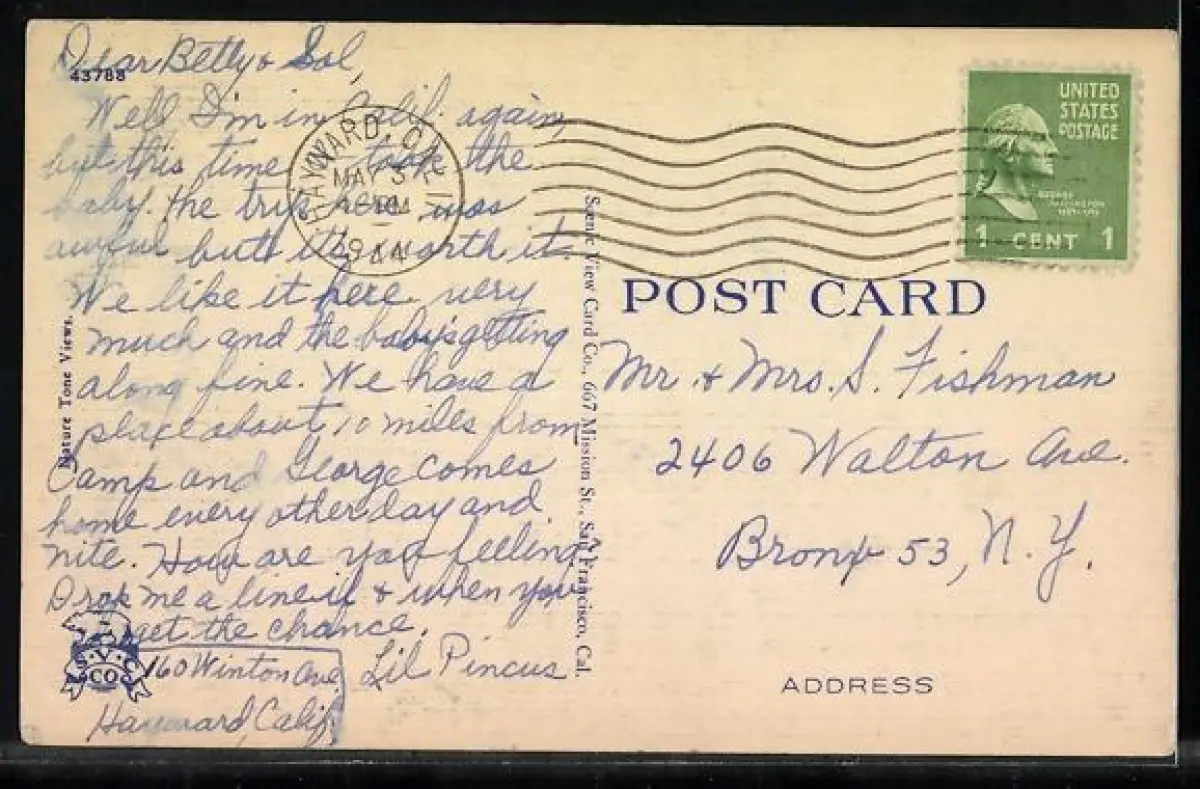 Dear Betty & Sol,
43788
Well I'm in Calif. again,
but this time I took the
baby. The trip here was
awful but its worth it.
We like it here very
much and the baby's getting
along fine. We have a
place about 10 miles from
Camp and George comes
home every other day and
nite. How are you feeling
Drop me a line if & when you
get the chance.
Lil Pincus
160 Winton Ave.
Hayward, Calif.
S.V.C.
CO.
Nature Tone Views.
HAYWARD, CALIF.
1944
Scenic View Card Co., 667 Mission St., San Francisco, Cal.
UNITED
STATES
POSTAGE
GEORGE
WASHINGTON
1 CENT 1
POST CARD
Mr. & Mrs. S. Fishman
2406 Walton Ave.
Bronx 53, N.Y.
ADDRESS